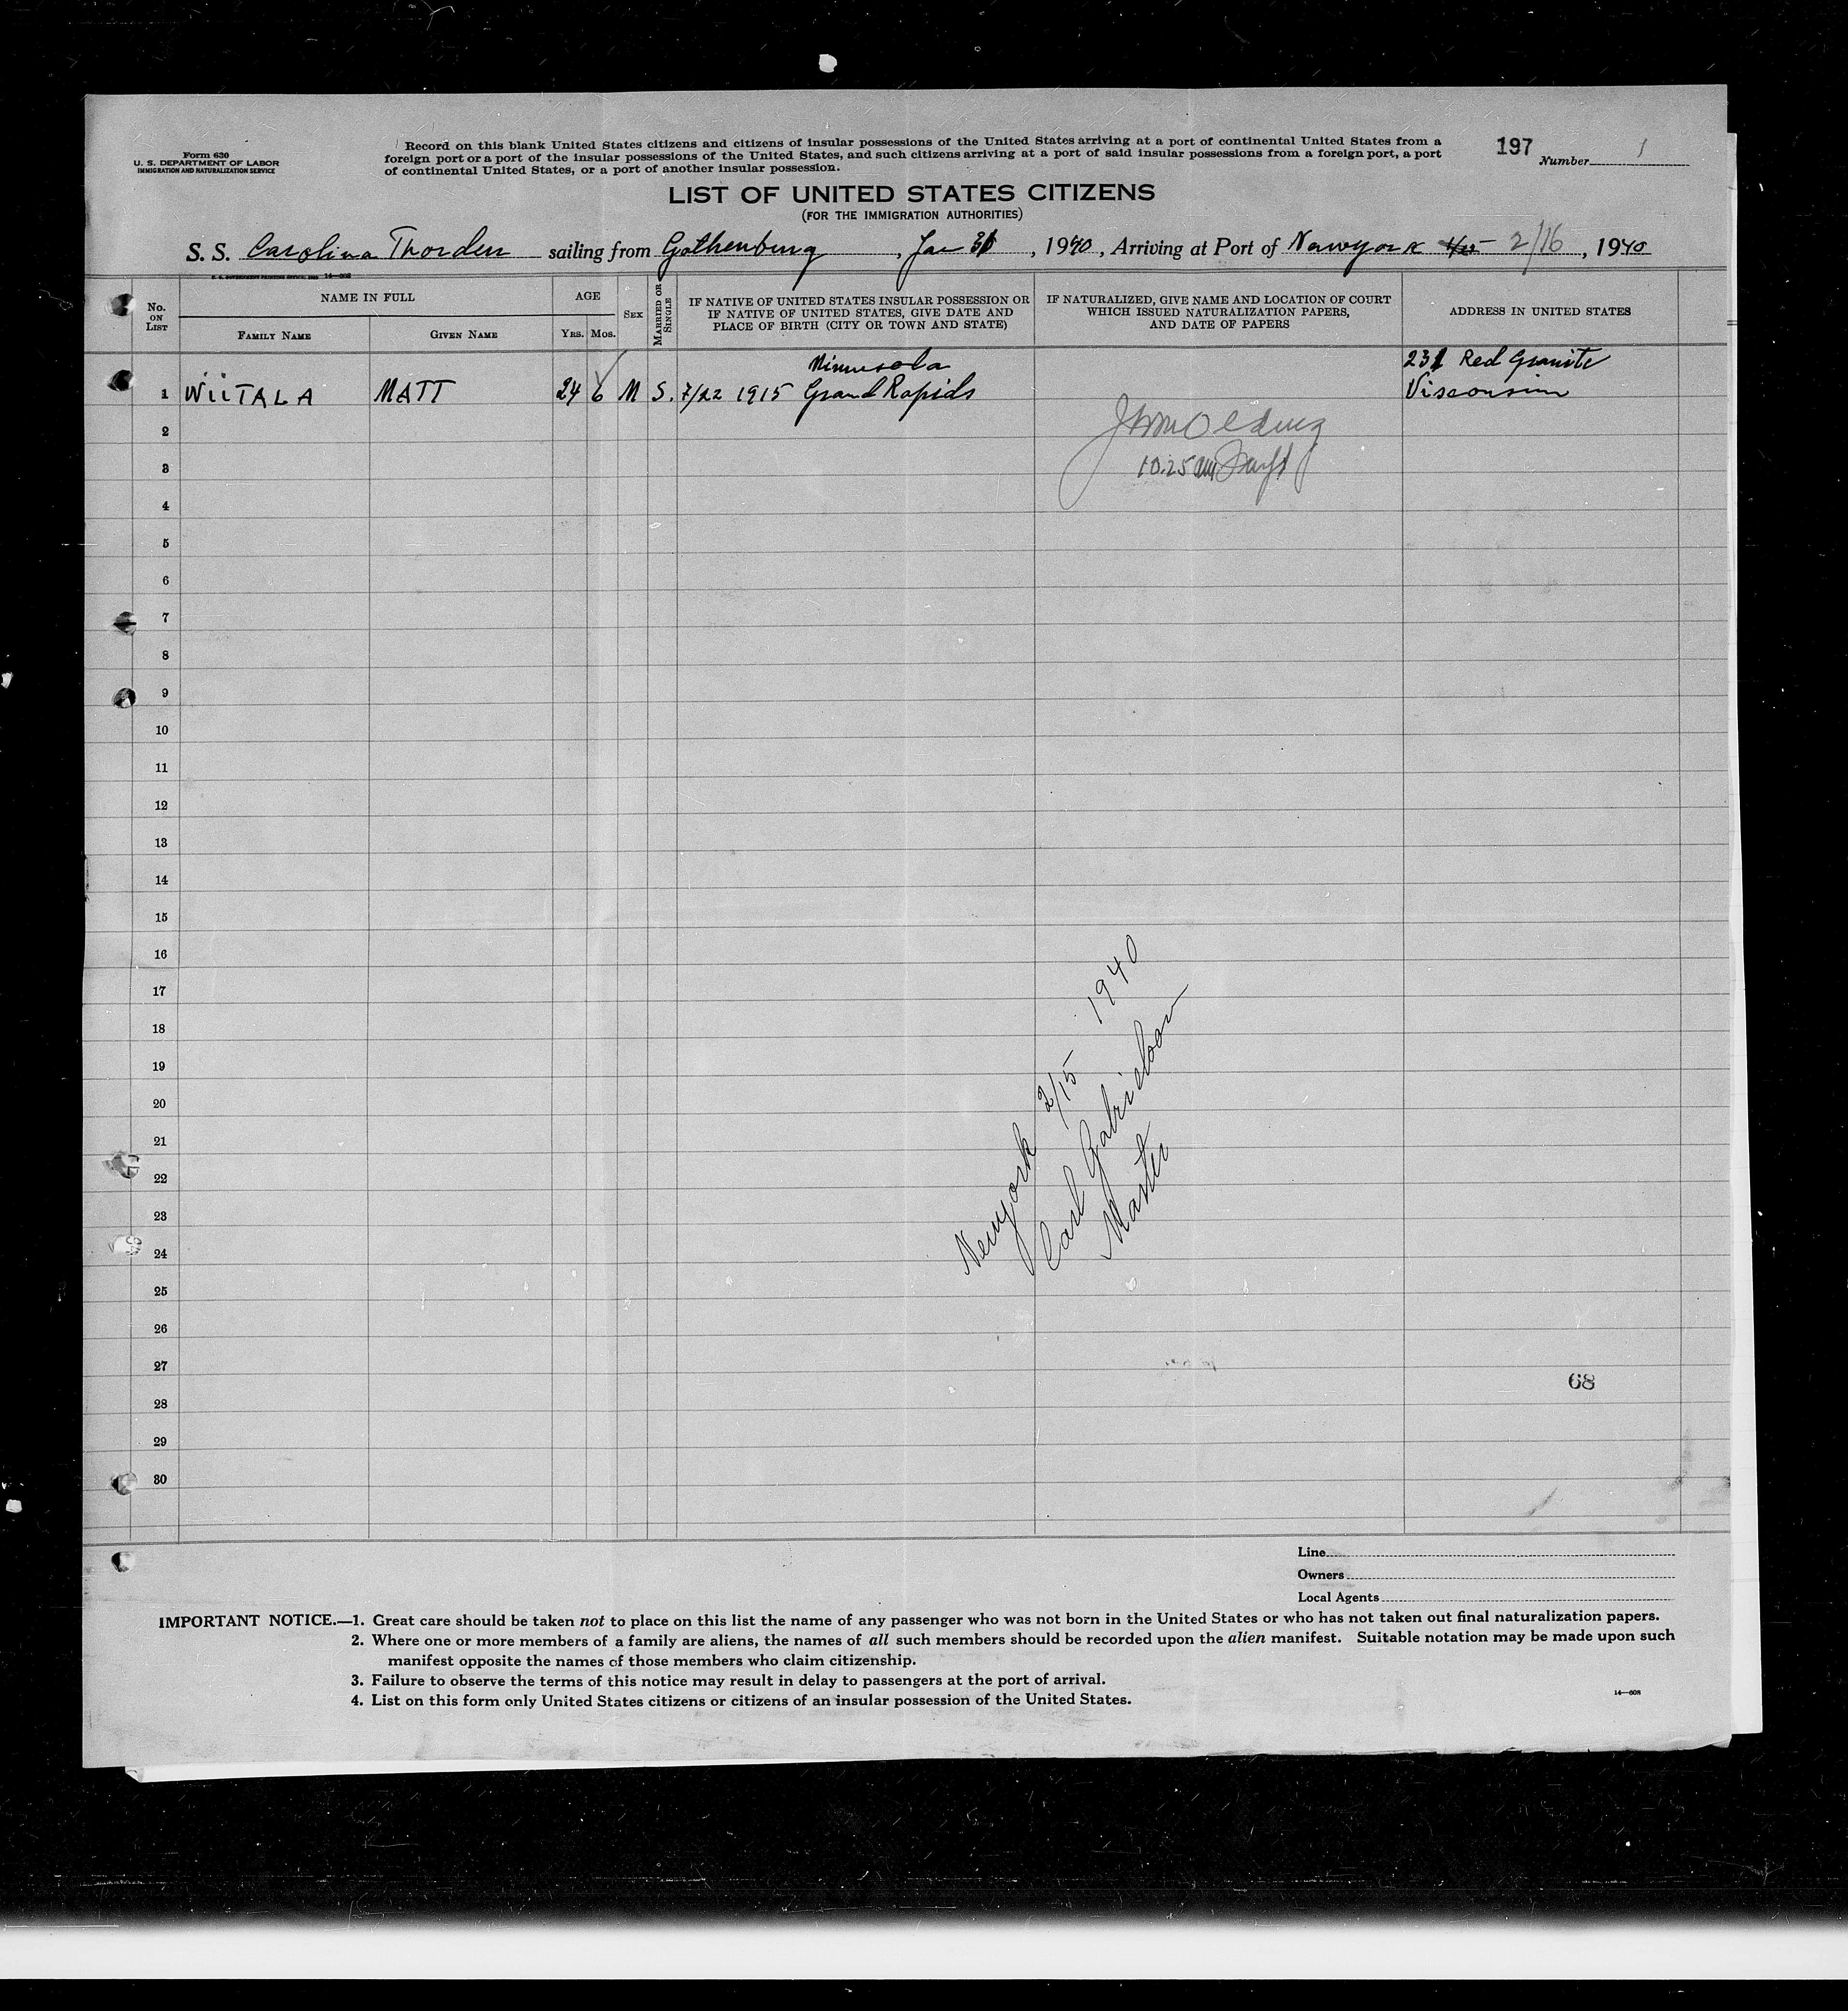 Form 630
U. S. DEPARTMENT OF LABOR
IMMIGRATION AND NATURALIZATION SERVICE
Record on this blank United States citizens and citizens of insular possessions of the United States arriving at a port of continental United States from a
foreign port or a port of the insular possessions of the United States, and such citizens arriving at a port of said insular possessions from a foreign port, a port
of continental United States, or a port of another insular possession.
197
Number 1
LIST OF UNITED STATES CITIZENS
(FOR THE IMMIGRATION AUTHORITIES)
S. S. Carolina Thorden sailing from Gothenburg, Jan 31, 1940, Arriving at Port of Newyork 2/16, 1940
U. S. GOVERNMENT PRINTING OFFICE 14—608
No. ON LIST
NAME IN FULL
FAMILY NAME
GIVEN NAME
AGE
YRS. MOS.
SEX
MARRIED OR SINGLE
IF NATIVE OF UNITED STATES INSULAR POSSESSION OR
IF NATIVE OF UNITED STATES, GIVE DATE AND
PLACE OF BIRTH (CITY OR TOWN AND STATE)
IF NATURALIZED, GIVE NAME AND LOCATION OF COURT
WHICH ISSUED NATURALIZATION PAPERS,
AND DATE OF PAPERS
ADDRESS IN UNITED STATES
Minnesota
231 Red Granite
1 WiiTALA MATT 24 6 M S. 7/22 1915 Grand Rapids Visconsin
2
10.25 am
3
4
5
6
7
8
9
10
11
12
13
14
15
16
17
18
19
20
21
22
23
24
25
26
27
28
29
30
Newyork 2/15 1940
Carl Gabrielson
Master
68
Line
Owners
Local Agents
IMPORTANT NOTICE.—1. Great care should be taken not to place on this list the name of any passenger who was not born in the United States or who has not taken out final naturalization papers.
2. Where one or more members of a family are aliens, the names of all such members should be recorded upon the alien manifest. Suitable notation may be made upon such
manifest opposite the names of those members who claim citizenship.
3. Failure to observe the terms of this notice may result in delay to passengers at the port of arrival.
4. List on this form only United States citizens or citizens of an insular possession of the United States.
14—608